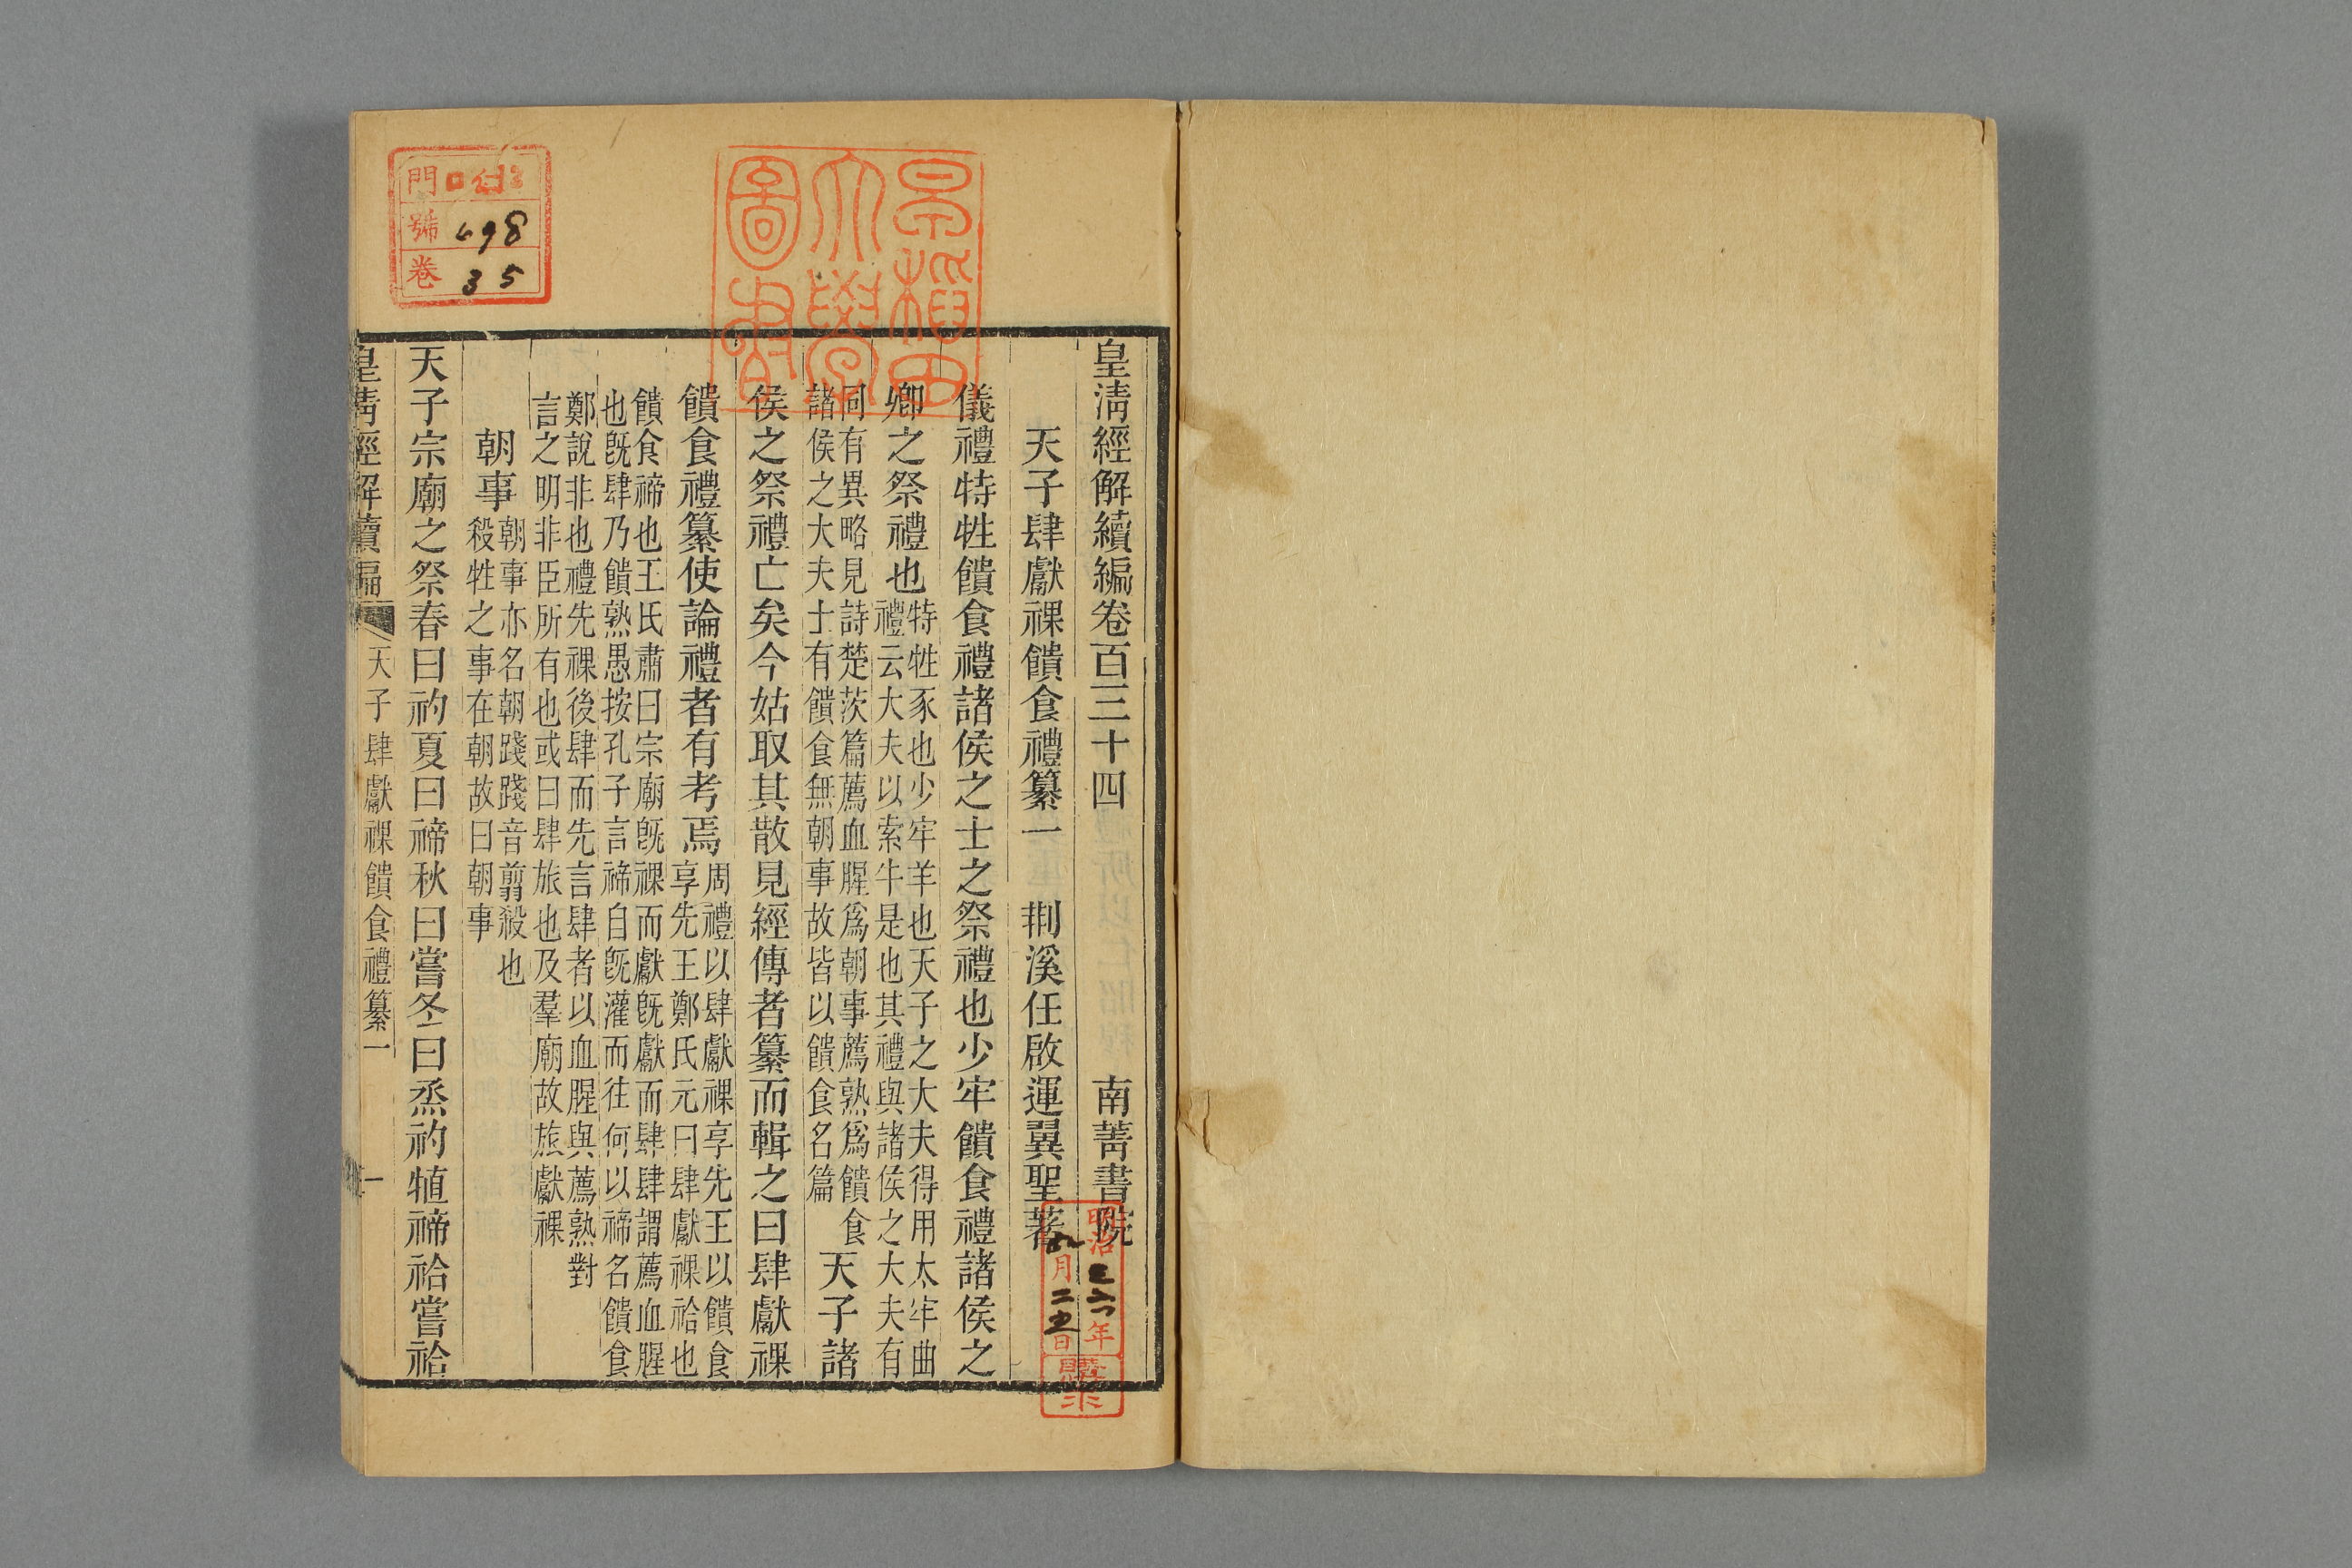 皇淸經解續編卷百三十四
南菁書院
天子肆獻祼饋食禮纂一
荆溪任啟運翼聖著
儀禮特牲饋食禮諸侯之士之祭禮也少牢饋食禮諸侯之
卿之祭禮也
特牲豕也少牢羊也天子之大夫得用太牢曲
禮云大夫以索牛是也其禮與諸侯之大夫有
同有異略見詩楚茨篇薦血腥爲朝事薦熟爲饋食
諸侯之大夫士有饋食無朝事故皆以饋食名篇
天子諸
侯之祭禮亡矣今姑取其散見經傳者纂而輯之曰肆獻祼
饋食禮纂使論禮者有考焉
周禮以肆獻祼享先王以饋食
享先王鄭氏元曰肆獻祼祫也
饋食禘也王氏肅曰宗廟旣祼而獻旣獻而肆肆謂薦血腥
也旣肆乃饋熟愚按孔子言禘自旣灌而往何以禘名饋食
鄭說非也禮先祼後肆而先言肆者以血腥與薦熟對
言之明非臣所有也或曰肆旅也及羣廟故旅獻祼
朝事
朝事亦名朝踐踐音翦殺也
殺牲之事在朝故曰朝事
天子宗廟之祭春曰礿夏曰禘秋曰嘗冬曰烝礿犆禘祫嘗祫
皇淸經解續編
天子肆獻祼饋食禮纂一
一
門
號 498
卷 35
早稻田
大學
圖書
明治三六年
九月二五日
購求